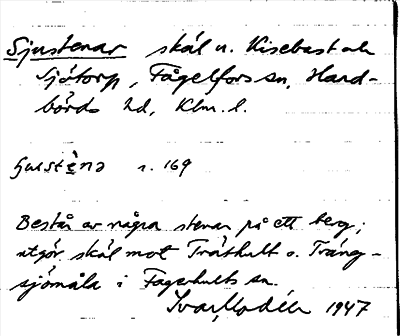 Sjustenar skäl n. Kisebast och
Sjötorp, Fågelfors sn, Hand-
börds hd, Klm. l.
s. 169
Består av några stenar på ett berg;
utgör skäl mot Tråthult o. Trång-
sjömåla i Fagerhults sn.
Ivar Modéer 1947